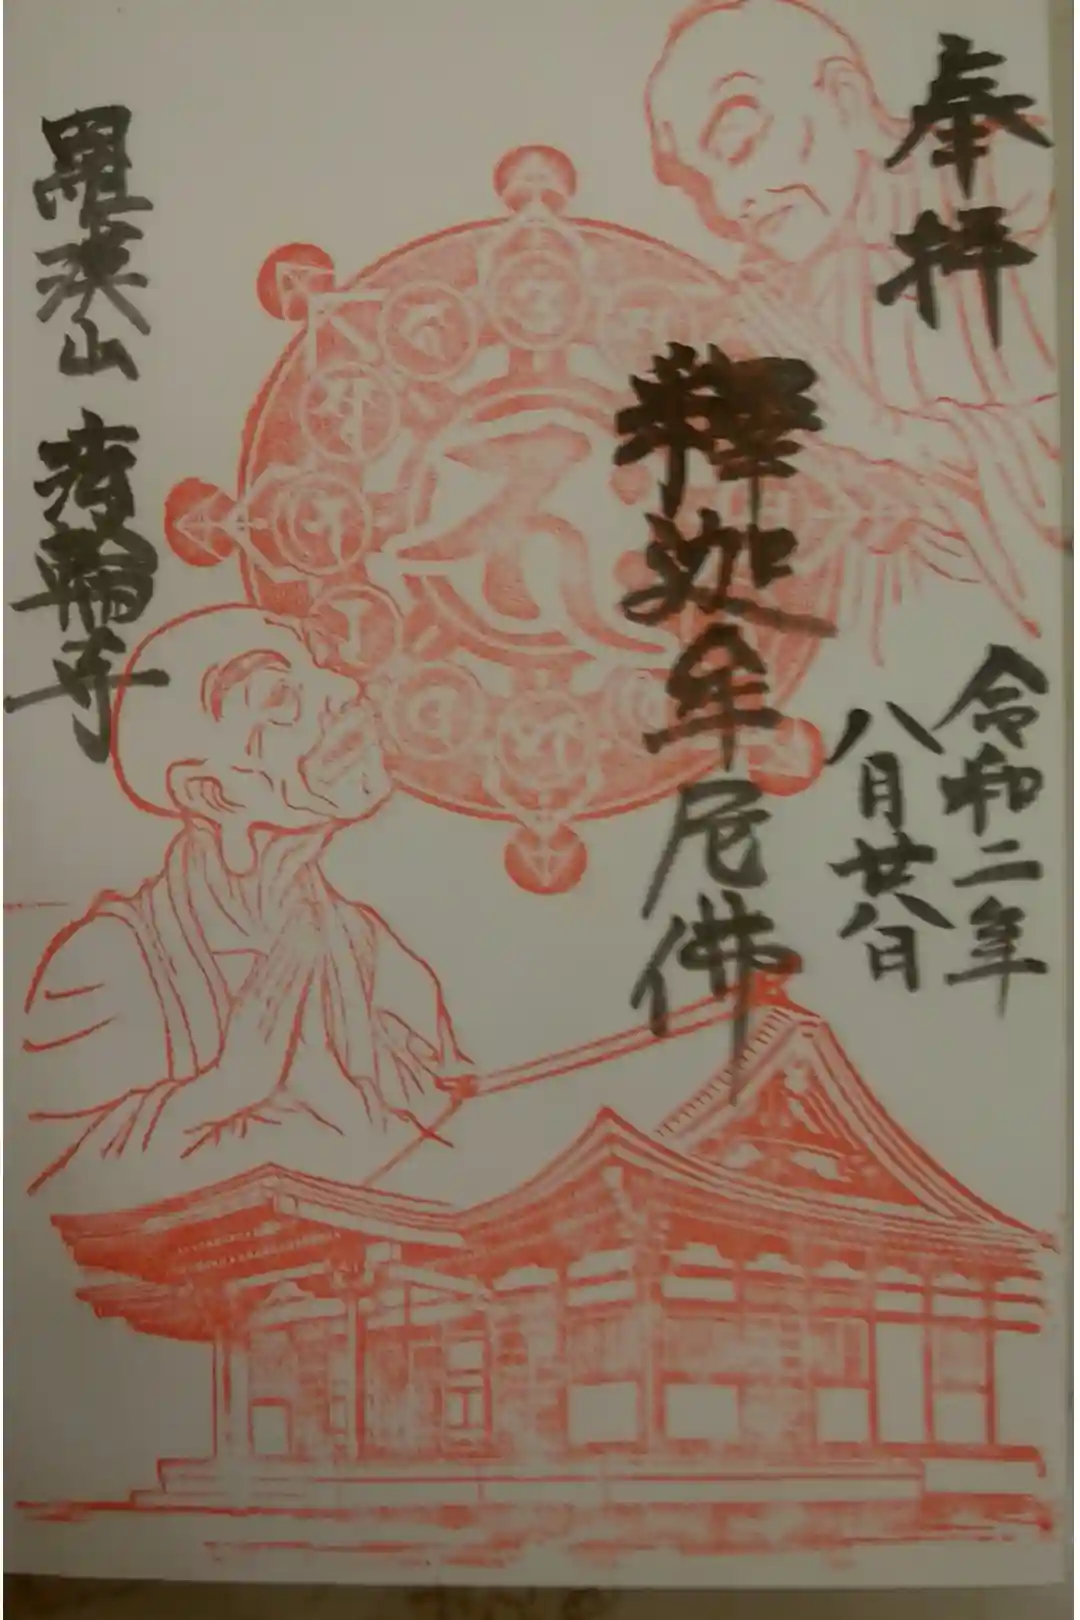 奉拝
令和二年
八月廿八日
釋迦牟尼佛
羅漢山 輪寺